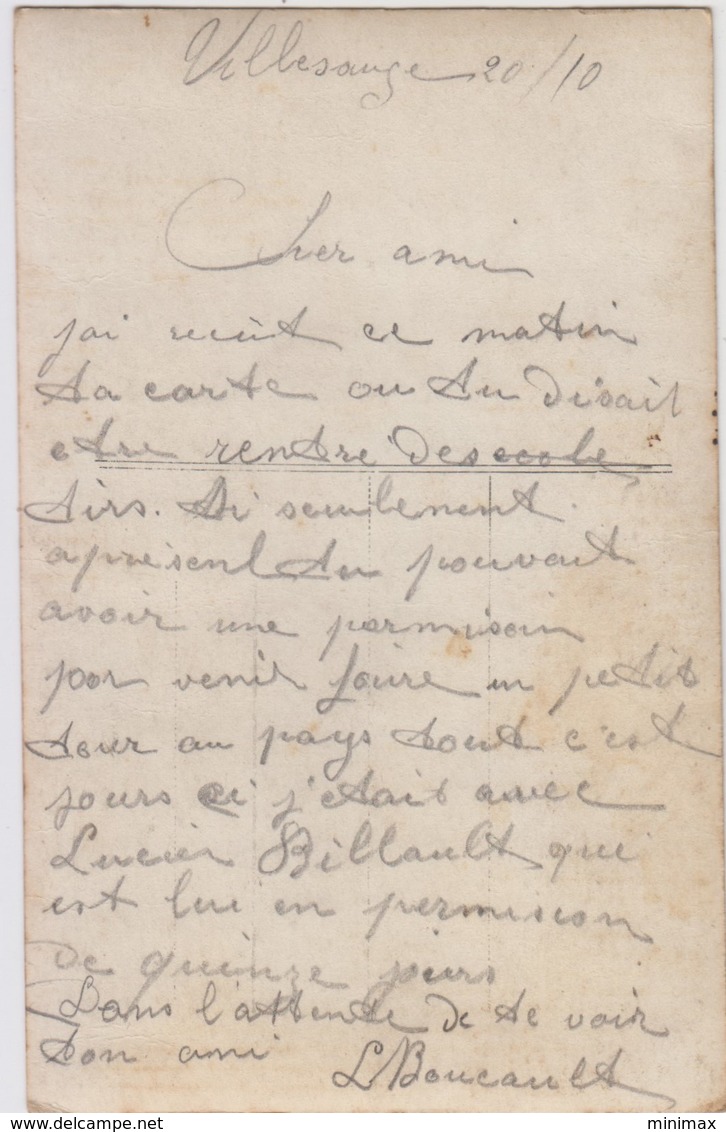 Villesauge 20/10
Cher ami
jai recut ce matin
ta carte ou tu disait
etre rentré des ecole
tirs. Si seulement
apresent tu pouvait
avoir une permisoin
por venir faire un petit
tour au pays tout c'est
jours ci j'etait avec
Lucien Billault qui
est lui en permision
de quinze jours
Dans l'attente de te voir
ton ami
L Boucault
delcampe.net
minimax